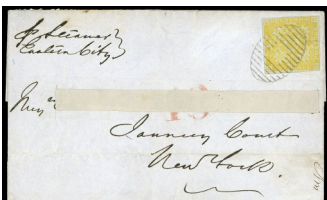 pr Steamer
Eastern City
10
Jauncey Court
New York.